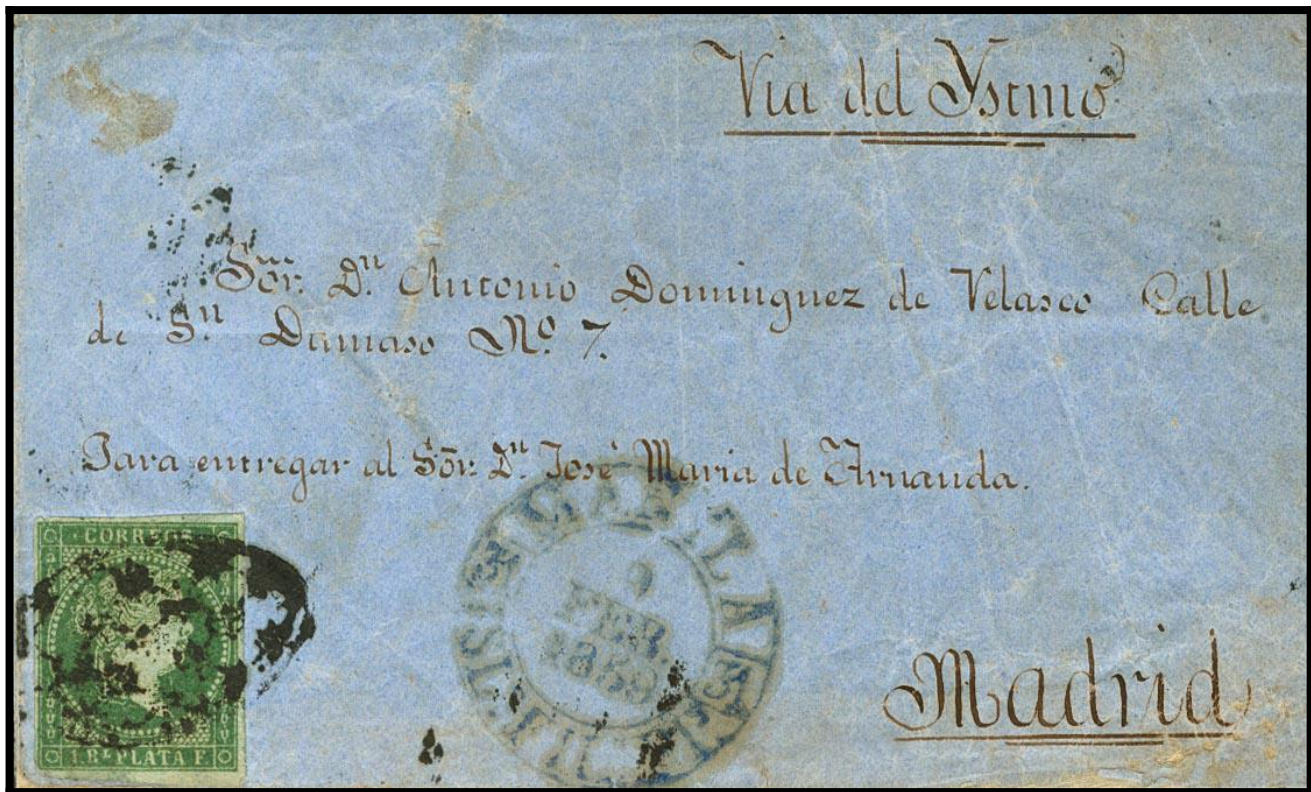 Via del Ystmo
Sōr. Dⁿ. Antonio Dominguez de Velasco Calle
de Sⁿ. Damaso Nº. 7.
Para entregar al Sōr. Dⁿ. José Maria de Arnanda.
CORREOS
FEB.
1859
Madrid
1 Rˡ PLATA F.